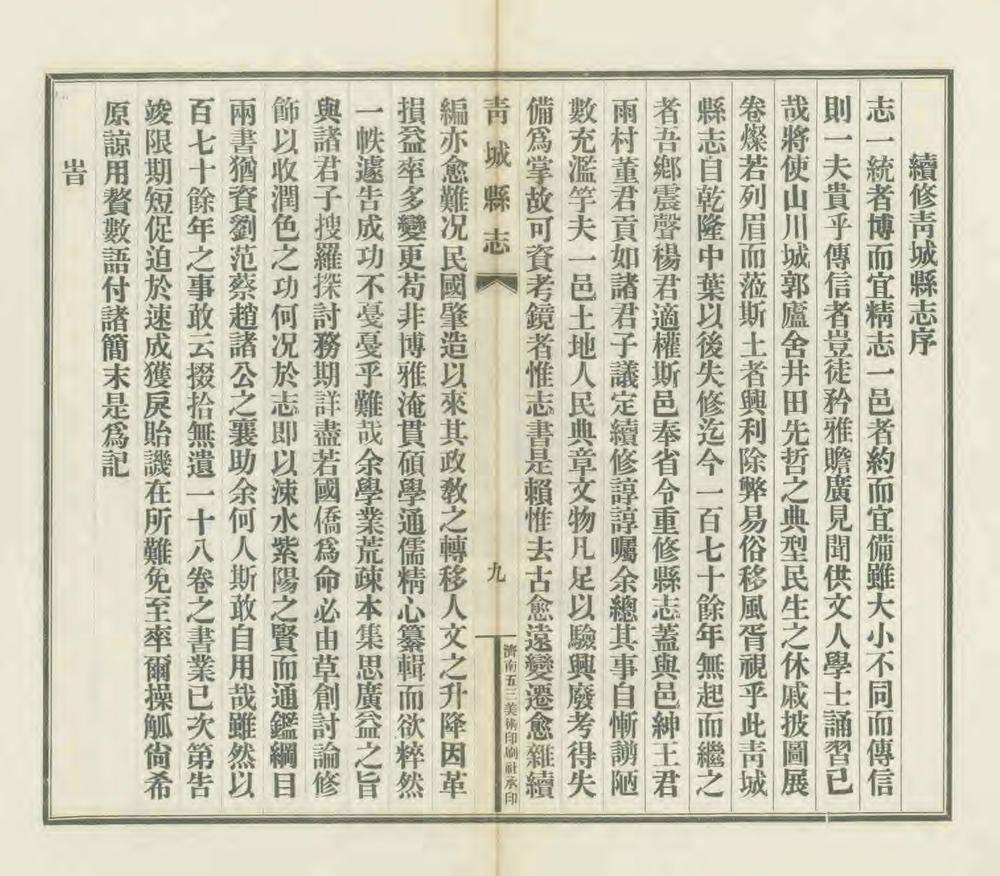 續修靑城縣志序
志一統者博而宜精志一邑者約而宜備雖大小不同而傳信
則一夫貴乎傳信者豈徒矜雅贍廣見聞供文人學士誦習已
哉將使山川城郭廬舍井田先哲之典型民生之休戚披圖展
卷燦若列眉而蒞斯土者興利除弊易俗移風胥視乎此靑城
縣志自乾隆中葉以後失修迄今一百七十餘年無起而繼之
者吾鄉震聲楊君適權斯邑奉省令重修縣志蓋與邑紳王君
雨村董君貢如諸君子議定續修諄諄囑余總其事自慚謭陋
數充濫竽夫一邑土地人民典章文物凡足以驗興廢考得失
備爲掌故可資考鏡者惟志書是賴惟去古愈遠變遷愈雜續
靑城縣志
九
濟南五三美術印刷社承印
編亦愈難况民國肇造以來其政敎之轉移人文之升降因革
損益率多變更苟非博雅淹貫碩學通儒精心纂輯而欲粹然
一帙遽告成功不戛戛乎難哉余學業荒疎本集思廣益之旨
與諸君子搜羅探討務期詳盡若國僑爲命必由草創討論修
飾以收潤色之功何况於志即以涑水紫陽之賢而通鑑綱目
兩書猶資劉范蔡趙諸公之襄助余何人斯敢自用哉雖然以
百七十餘年之事敢云掇拾無遺一十八卷之書業已次第告
竣限期短促迫於速成獲戾貽譏在所難免至率爾操觚尙希
原諒用贅數語付諸簡末是爲記